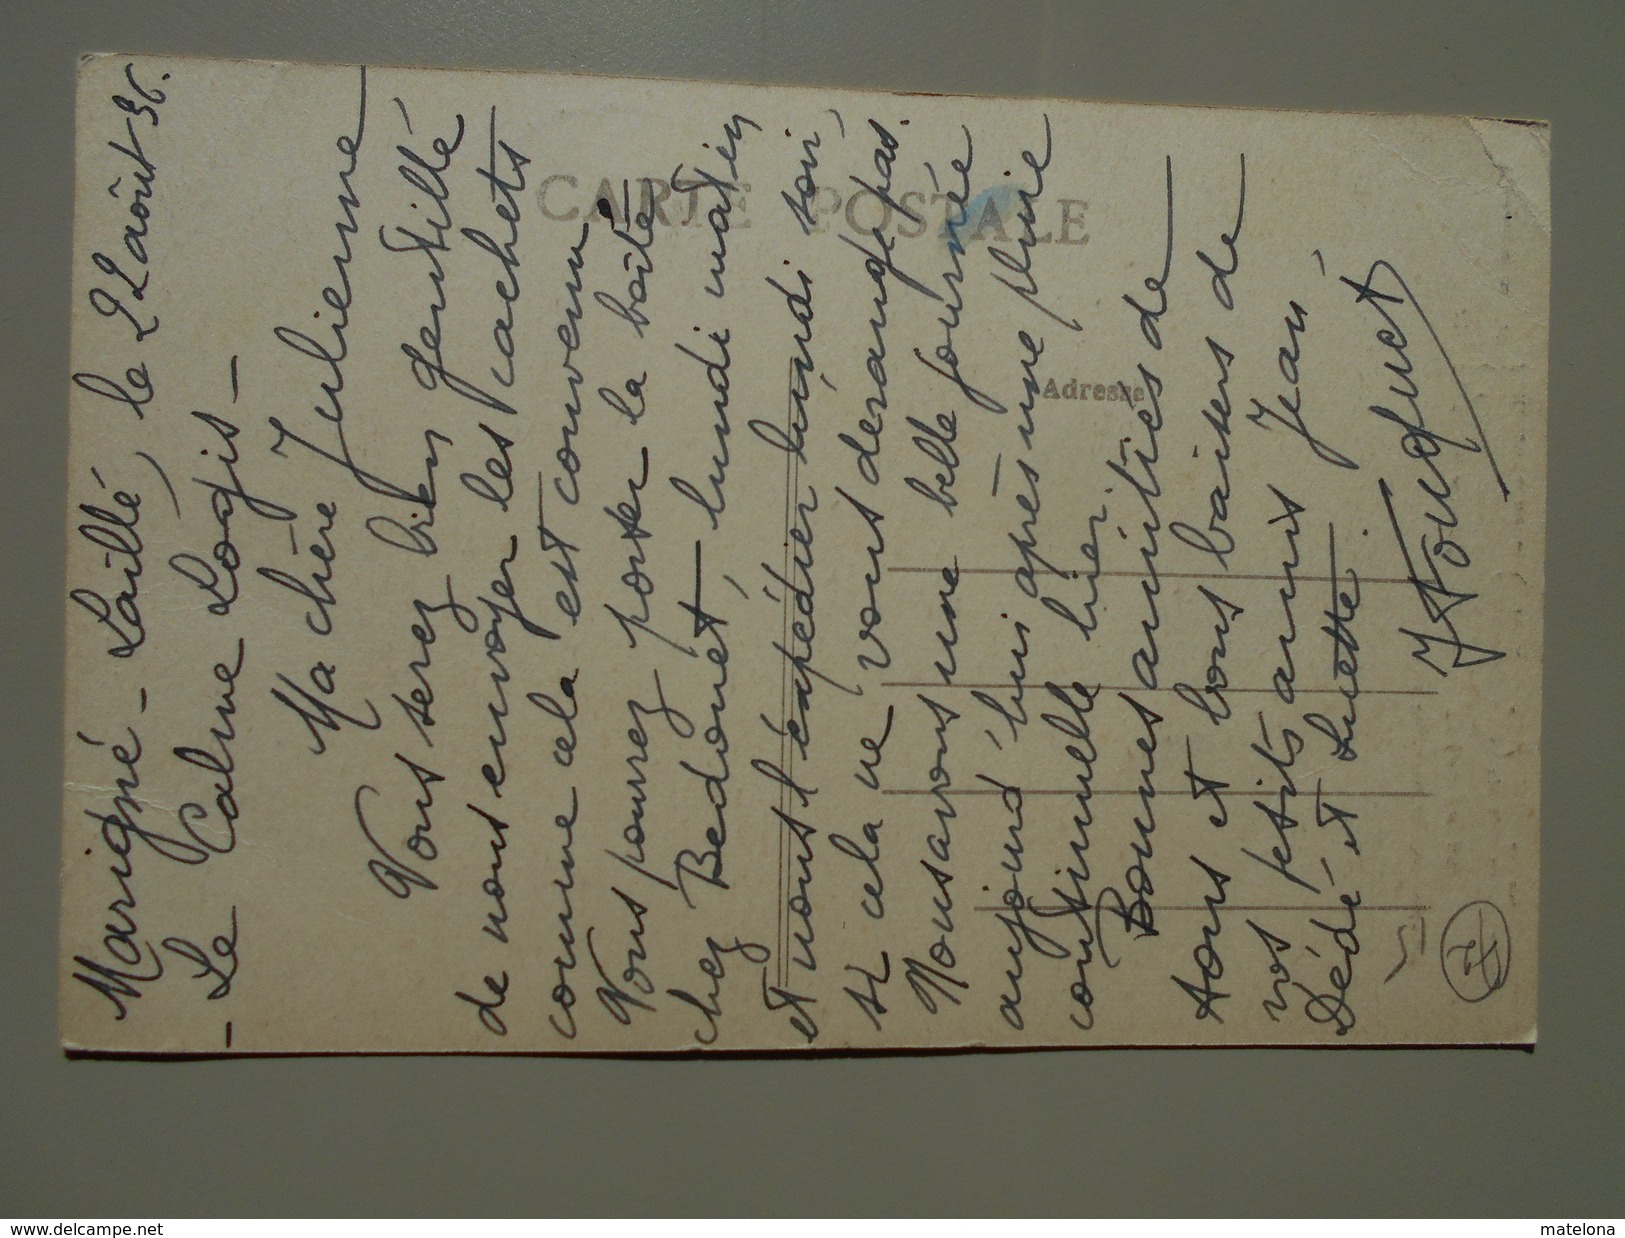 Marigné-Laillé, le 22 août 36.
- Le Calme Logis -
Ma chère Julienne
Vous serez bien gentille
de nous envoyer les cachets
comme cela est convenu.
Vous pourrez poster la boîte
chez Bedouet, lundi matin
et nous l'expédier lundi soir,
si cela ne vous dérange pas.
Nous avons une belle journée
aujourd'hui après une pluie
continuelle hier.
Bonnes amitiés de
tous et bons baisers de
vos petits amis Jean
Dédé et Luette.
CARTE POSTALE
Adresse
www.delcampe.net
matelona